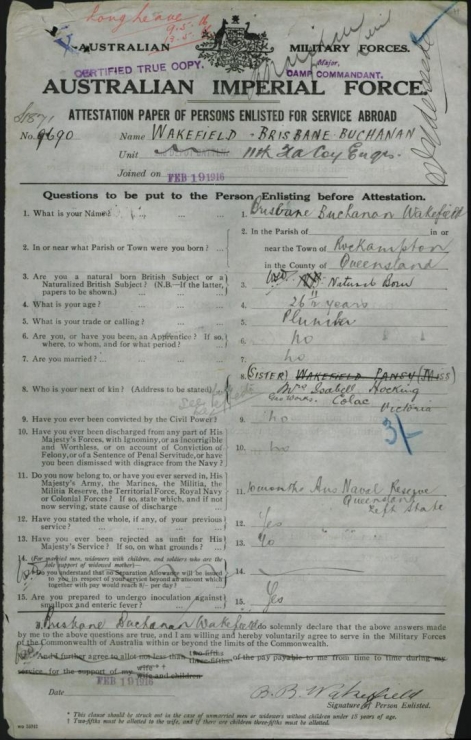 Long Leave
AUSTRALIAN MILITARY FORCES.
CERTIFIED TRUE COPY.
Major,
CAMP COMMANDANT.
AUSTRALIAN IMPERIAL FORCE
ATTESTATION PAPER OF PERSONS ENLISTED FOR SERVICE ABROAD
No. Name WAKEFIELD - BRISBANE BUCHANAN
Unit 11th Fd Coy Engrs.
Joined on FEB 19 1916
Questions to be put to the Person Enlisting before Attestation.
1. What is your Name? ... 1. Brisbane Buchanan Wakefield
2. In or near what Parish or Town were you born? ... 2. In the Parish of in or
near the Town of Rockampton
in the County of Queensland
3. Are you a natural born British Subject or a
Naturalized British Subject? (N.B.—If the latter,
papers to be shown.) 3. Natural Born
4. What is your age? 4. 26 years
5. What is your trade or calling? 5. Plumber
6. Are you, or have you been, an Apprentice? If so,
where, to whom, and for what period? 6. no
7. Are you married? 7. no
8. Who is your next of kin? (Address to be stated) 8. (SISTER) WAKEFIELD PANSY (MISS)
Mrs Isabell Hocking
Gas Works. Colac
Victoria
9. Have you ever been convicted by the Civil Power? 9. no
3/-
10. Have you ever been discharged from any part of His
Majesty's Forces, with Ignominy, or as Incorrigible
and Worthless, or on account of Conviction of
Felony, or of a Sentence of Penal Servitude, or have
you been dismissed with disgrace from the Navy? 10. no
11. Do you now belong to, or have you ever served in, His
Majesty's Army, the Marines, the Militia, the
Militia Reserve, the Territorial Force, Royal Navy
or Colonial Forces? If so, state which, and if not
now serving, state cause of discharge 11. months Aus Naval Reserve
Queensland
Left State
12. Have you stated the whole, if any, of your previous
service? 12. Yes
13. Have you ever been rejected as unfit for His
Majesty's Service? If so, on what grounds? 13. No
14. (For married men, widowers with children, and soldiers who are the
sole support of widowed mother)—
Do you understand that no Separation Allowance will be issued
to you in respect of your service beyond an amount which
together with pay would reach 8/- per day? 14.
15. Are you prepared to undergo inoculation against
smallpox and enteric fever? 15. Yes
I, Brisbane Buchanan Wakefield do solemnly declare that the above answers
made by me to the above questions are true, and I am willing and hereby voluntarily agree to serve in the Military Forces
of the Commonwealth of Australia within or beyond the limits of the Commonwealth.
And I further agree to allot not less than two-fifths three-fifths of the pay payable to me from time to time during my
service for the support of my wife wife and children
Date FEB 19 1916
B. B. Wakefield
Signature of Person Enlisted.
* This clause should be struck out in the case of unmarried men or widowers without children under 18 years of age.
† Two-fifths must be allotted to the wife, and if there are children three-fifths must be allotted.